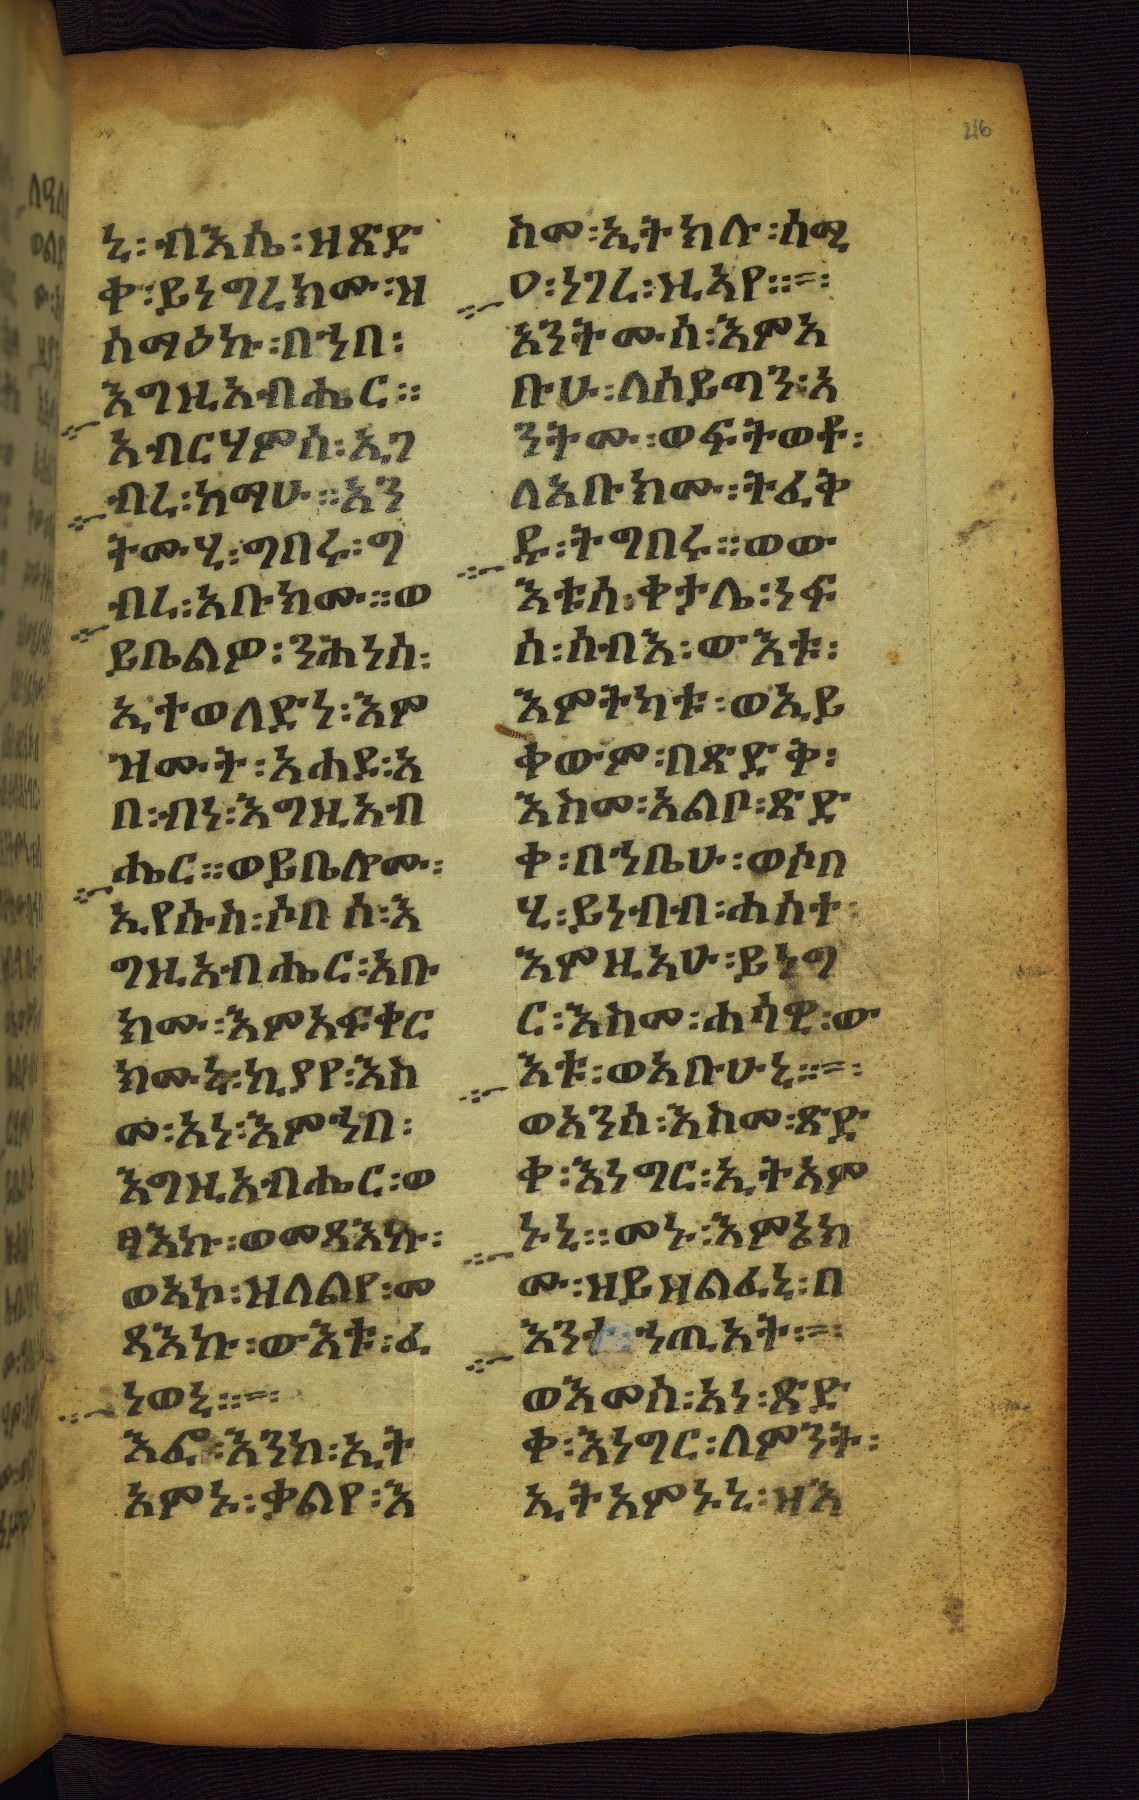 216
ኒ፡ብእሴ፡ዘጽድ
ቀ፡ይነግረክሙ፡ዘ
ሰማዕኩ፡በኀበ፡
እግዚአብሔር።
አብርሃምሰ፡ኢገ
ብረ፡ከማሁ።አን
ትሙሂ፡ግበሩ፡ግ
ብረ፡አቡክሙ።ወ
ይቤልዎ፡ንሕነሰ፡
ኢተወለድነ፡እም
ዝሙት፡አሐዱ፡አ
በ፡ብነ፡እግዚአብ
ሔር።ወይቤሎሙ፡
ኢየሱስ፡ሶበ ሰ፡እ
ግዚአብሔር፡አቡ
ክሙ፡እምአፍቀር
ክሙኒ፡ኪያየ፡እስ
መ፡አነ፡እምኀበ፡
እግዚአብሔር፡ወ
ፃእኩ፡ወመጻእኩ፡
ወአኮ፡ዝለልየ፡መ
ጻእኩ፡ውእቱ፡ፈ
ነወኒ።=፡
እፎ፡እንከ፡ኢት
አምኑ፡ቃልየ፡እ
ስመ፡ኢትክሉ፡ሰሚ
ዐ፡ነገረ፡ዚአየ።=፡
አንትሙሰ፡እምአ
ቡሁ፡ለሰይጣን፡አ
ንትሙ፡ወፍትወቶ፡
ለአቡክሙ፡ትፈቅ
ዱ፡ትግበሩ።ወው
እቱሰ፡ቀታሌ፡ነፍ
ሰ፡ሰብእ፡ውእቱ፡
እምትካቱ፡ወኢይ
ቀውም፡በጽድቅ፡
እስመ፡አልቦ፡ጽድ
ቀ፡በኀቤሁ፡ወሶበ
ሂ፡ይነብብ፡ሐሰተ፡
እምዚአሁ፡ይነግ
ር፡እስመ፡ሐሳዊ፡ው
እቱ፡ወአቡሁኒ።=፡
ወአንሰ፡እስመ፡ጽድ
ቀ፡እነግር፡ኢትአም
ኑኒ።መኑ፡እምኔክ
ሙ፡ዘይዘልፈኒ፡በ
እንተ፡ኀጢአት፡=፡
ወእመሰ፡አነ፡ጽድ
ቀ፡እነግር፡ለምንት፡
ኢትአምኑኒ፡ዘእ